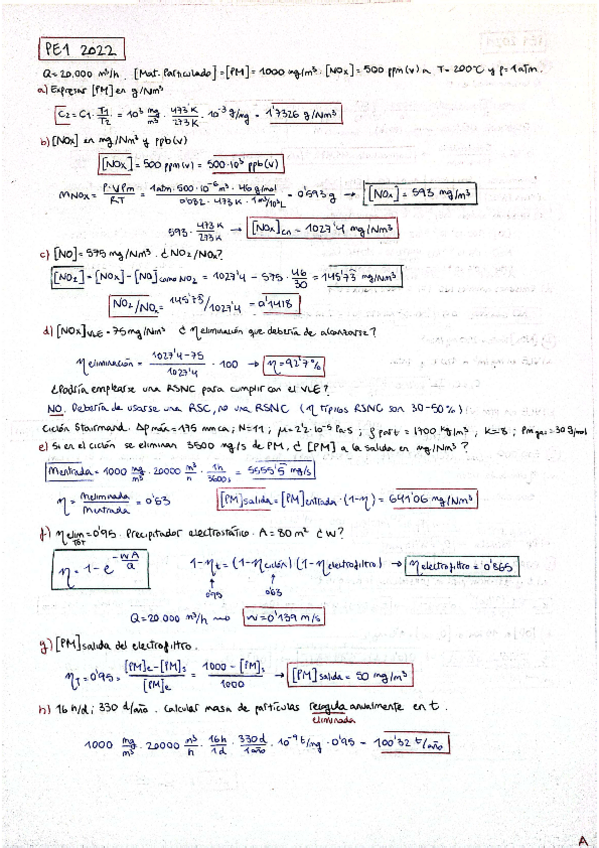 PE1 2022
Q=20.000 m³/h. [Mat. Particulado]=[PM]=1000 mg/m³; [NOx]=500 ppm(v) a T=200ºC y p=1atm.
a) Expresar [PM] en g/Nm³
C₂=C₁·T₁/T₂ = 10³ mg/m³ · 473K/273K · 10⁻³ g/mg = 1'7326 g/Nm³
b) [NOx] en mg/Nm³ y ppb(v)
[NOx]=500 ppm(v)=500·10³ ppb(v)
mNOx = P·V·Pm/RT = 1atm·500·10⁻⁶m³·46g/mol / 0'082·473K·1m³/10³L = 0'593g → [NOx]=593 mg/m³
593·473K/273K → [NOx]cn=1027'4 mg/Nm³
c) [NO]=575mg/Nm³. ¿NO₂/NOx?
[NO₂]=[NOx]-[NO]como NO₂ = 1027'4 - 575·46/30 = 145'73 mg/Nm³
NO₂/NOx = 145'73/1027'4 = 0'1418
d) [NOx]VLE=75mg/Nm³ ¿η eliminación que debería de alcanzarse?
η eliminación = 1027'4-75/1027'4 ·100 → η=92'7%
¿Podría emplearse una RSNC para cumplir con el VLE?
NO. Debería de usarse una RSC, no una RSNC (η típios RSNC son 30-50%)
Ciclón Stairmand. Δp máx=175 mmca; N=11; μ=2'2·10⁻⁵ Pa·S; ρpart=1700 kg/m³; k=8; Pmgas=30g/mol
e) Si en el ciclón se eliminan 3500 mg/s de PM, ¿[PM] a la salida en mg/Nm³?
Mentrada=1000 mg/m³ · 20000 m³/h · 1h/3600s = 5555'5 mg/s
η = meliminada/mentrada = 0'63 [PM]salida=[PM]entrada·(1-η)=641'06 mg/Nm³
f) ηelim TOT=0'95. Precipitador electrostático. A=80m² ¿W?
η=1-e^(-WA/Q) 1-ηt=(1-ηciclón)(1-ηelectrofiltro) → ηelectrofiltro=0'865
0'95 0'63
Q=20.000 m³/h → W=0'139 m/s
g) [PM]salida del electrofiltro.
ηT=0'95=[PM]e-[PM]s/[PM]e = 1000-[PM]s/1000 → [PM]salida=50 mg/m³
h) 16h/d; 330 d/año. Calcular masa de partículas recogida anualmente en t.
eliminada
1000 mg/m³ · 20000 m³/h · 16h/1d · 330d/1año · 10⁻⁹t/mg · 0'95 = 100'32 t/año
A